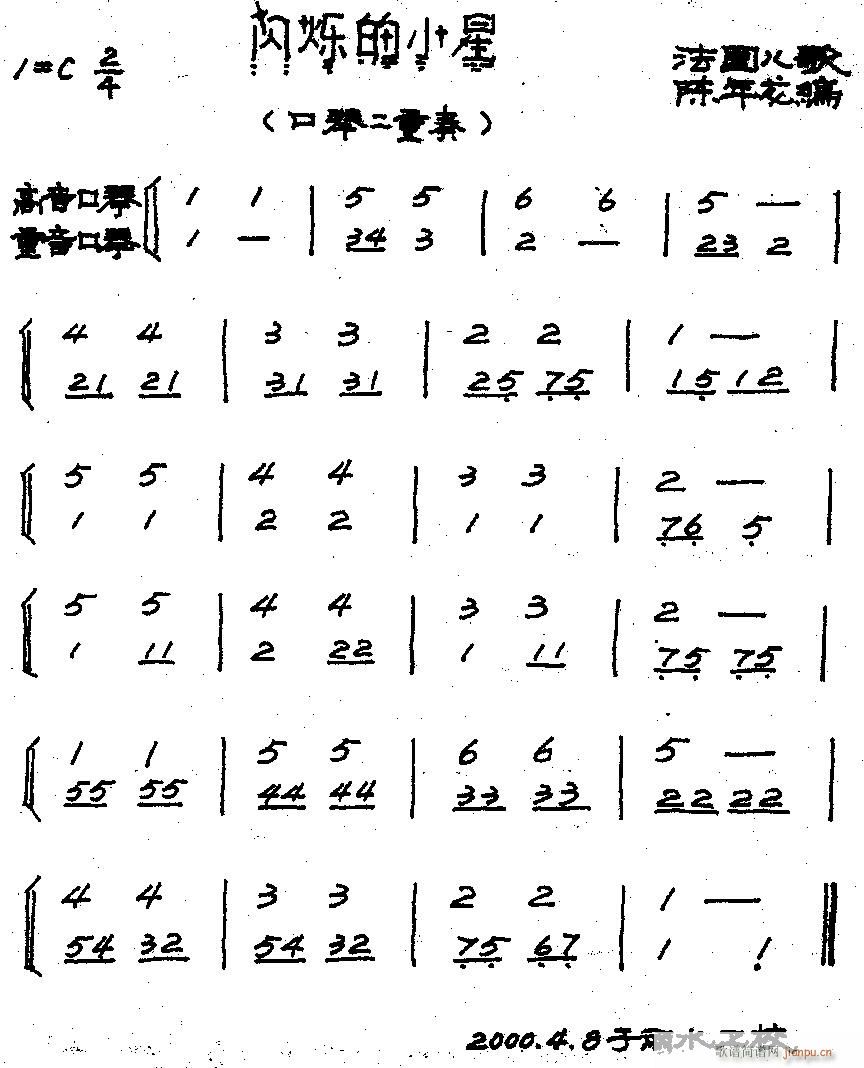 闪烁的小星
1=C 2/4
法国儿歌
陈年花编
（口琴二重奏）
高音口琴 1 1 | 5 5 | 6 6 | 5 — |
重音口琴 1 — | 34 3 | 2 — | 23 2 |
4 4 | 3 3 | 2 2 | 1 — |
21 21 | 31 31 | 25 75 | 15 12 |
5 5 | 4 4 | 3 3 | 2 — |
1 1 | 2 2 | 1 1 | 76 5 |
5 5 | 4 4 | 3 3 | 2 — |
1 11 | 2 22 | 1 11 | 75 75 |
1 1 | 5 5 | 6 6 | 5 — |
55 55 | 44 44 | 33 33 | 22 22 |
4 4 | 3 3 | 2 2 | 1 — ‖
54 32 | 54 32 | 75 67 | 1 1 ‖
2000.4.8于丽水
歌谱简谱网 jianpu.cn